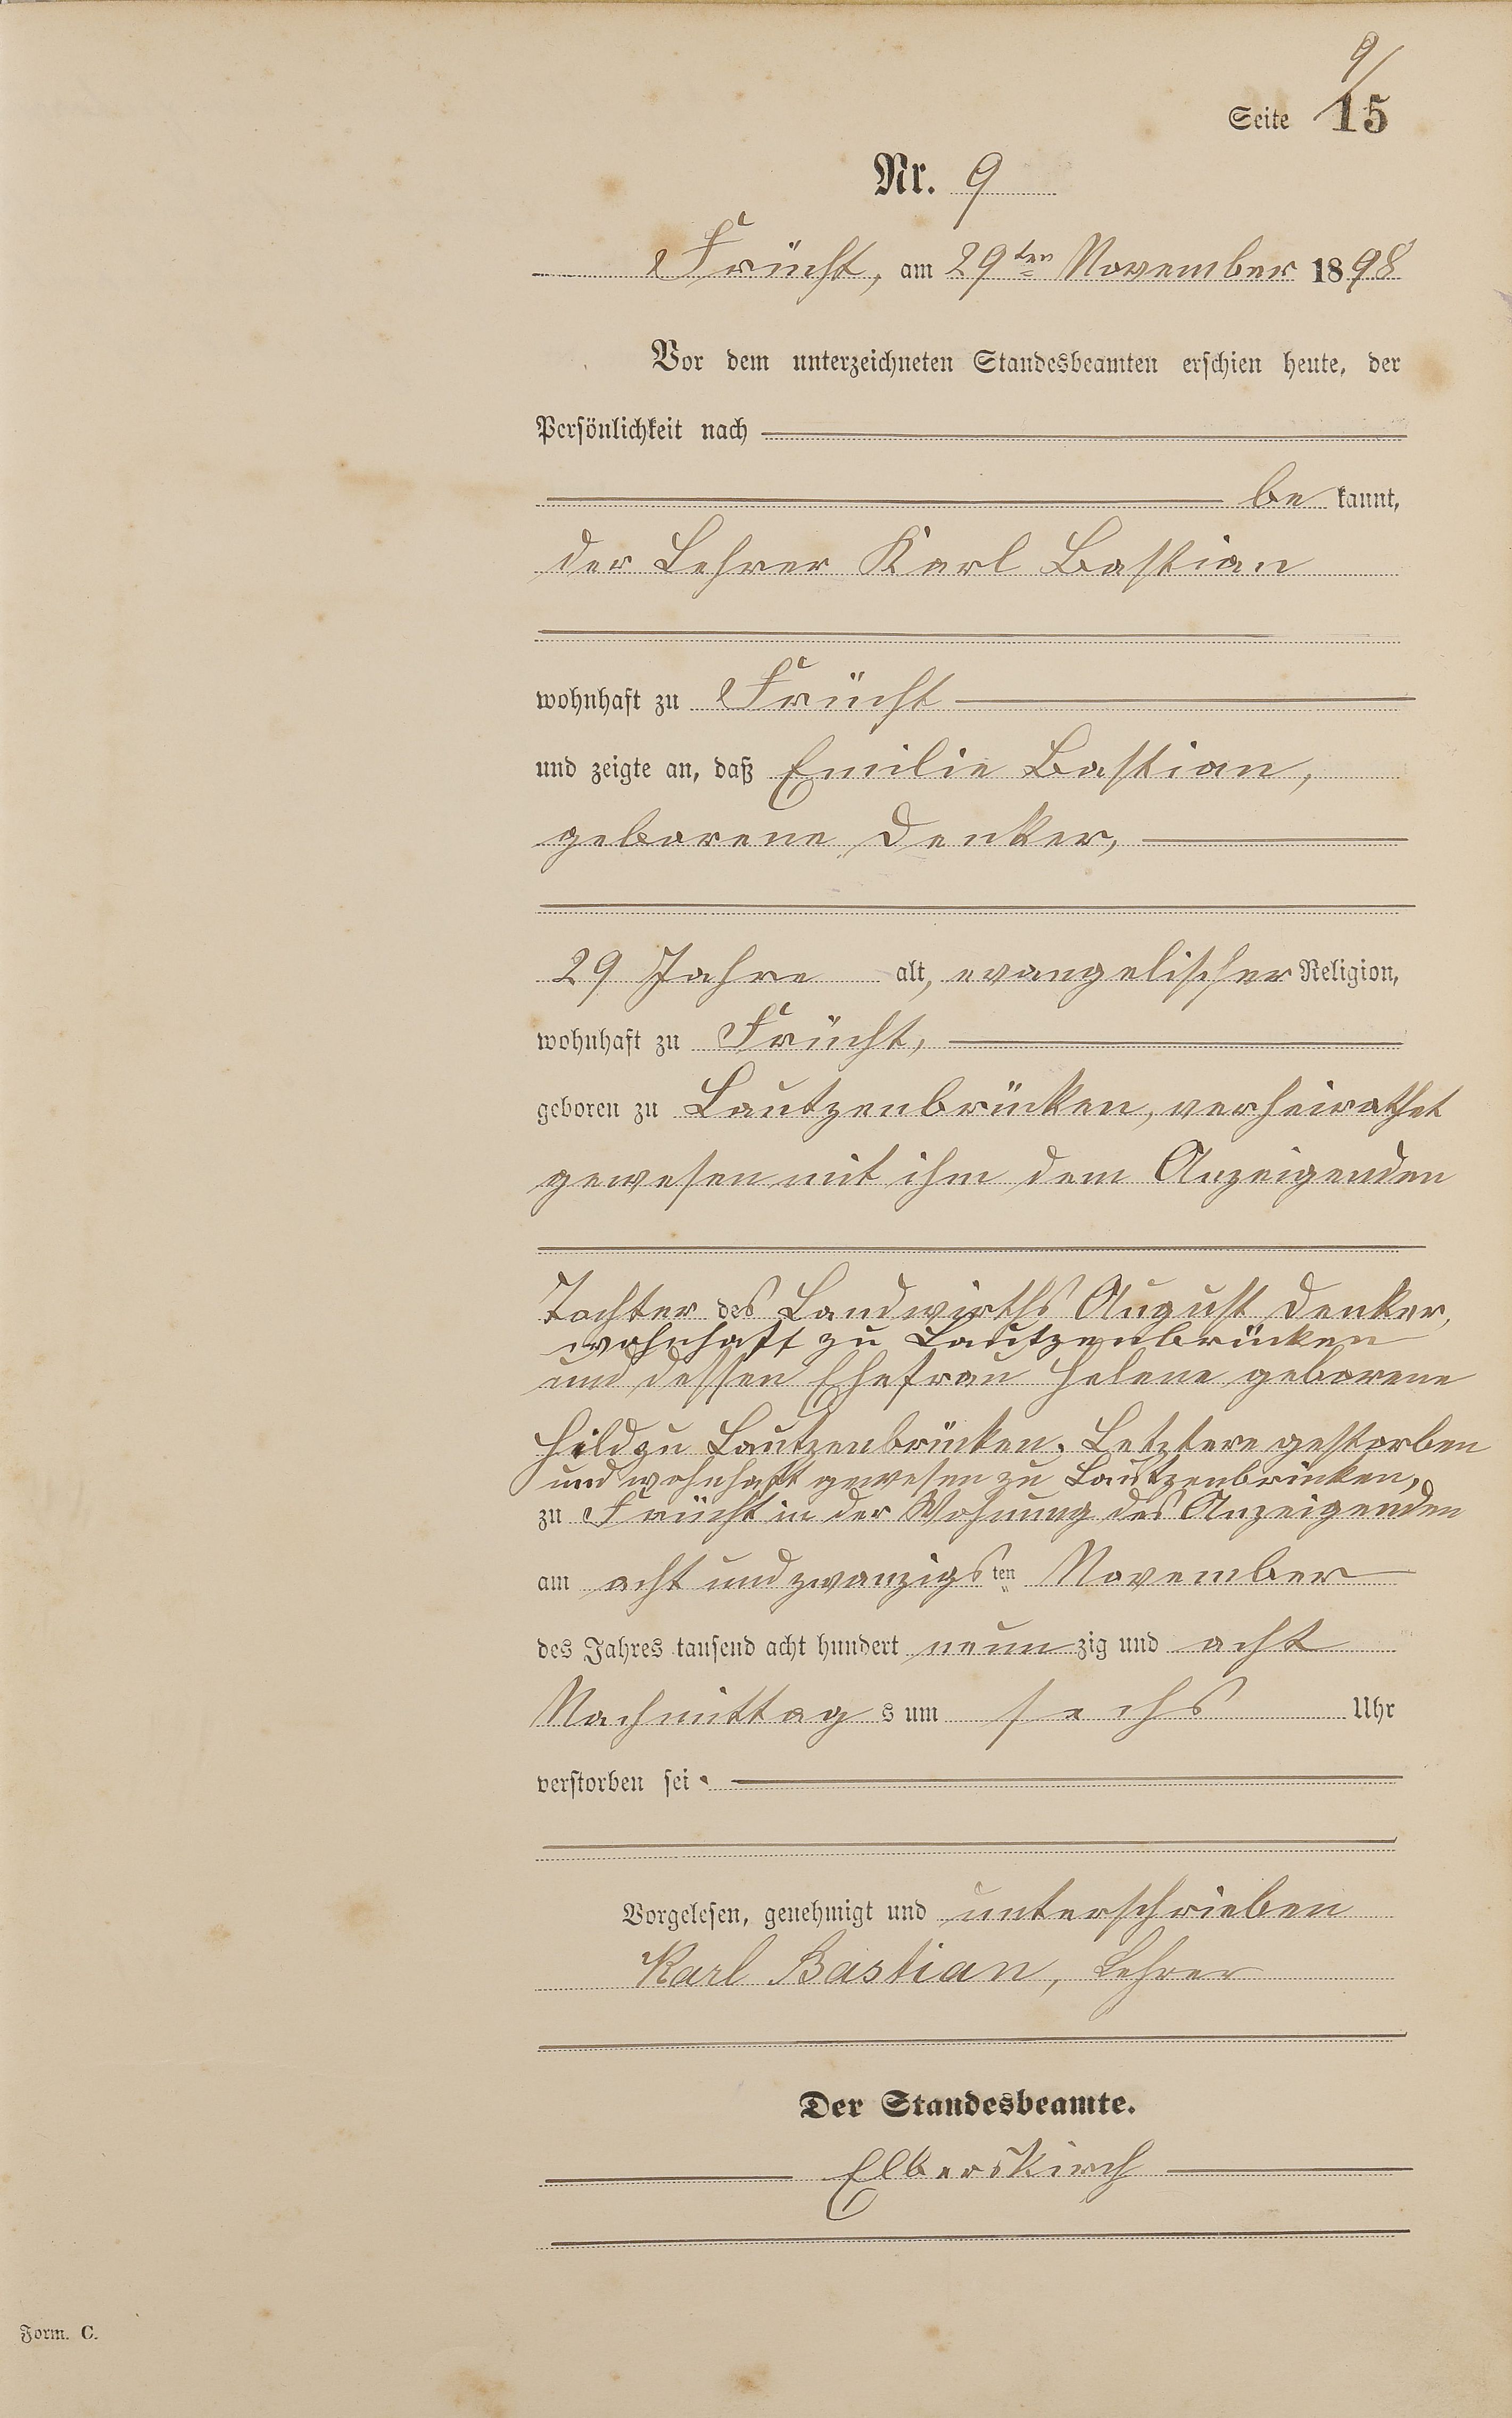 9/
Seite 15
Nr. 9
Frücht, am 29ten November 1898
Vor dem unterzeichneten Standesbeamten erschien heute, der
Persönlichkeit nach
be kannt,
der Lehrer Karl Bastian
wohnhaft zu Frücht
und zeigte an, daß Emilie Bastian,
geborene Denker,
29 Jahre alt, evangelischer Religion,
wohnhaft zu Frücht,
geboren zu Lautzenbrücken, verheirathet
gewesen mit ihm dem Anzeigenden
Tochter des Landwirths August Denker,
wohnhaft zu Lautzenbrücken
und dessen Ehefrau Helene geborene
Hild zu Lautzenbrücken. Letztere gestorben
und wohnhaft gewesen zu Lautzenbrücken,
zu Frücht in der Wohnung des Anzeigenden
am acht und zwanzigsten November
des Jahres tausend acht hundert neun zig und acht
Nachmittag s um sechs Uhr
verstorben sei.
Vorgelesen, genehmigt und unterschrieben
Karl Bastian, Lehrer
Der Standesbeamte.
Elberskirch
Form. C.